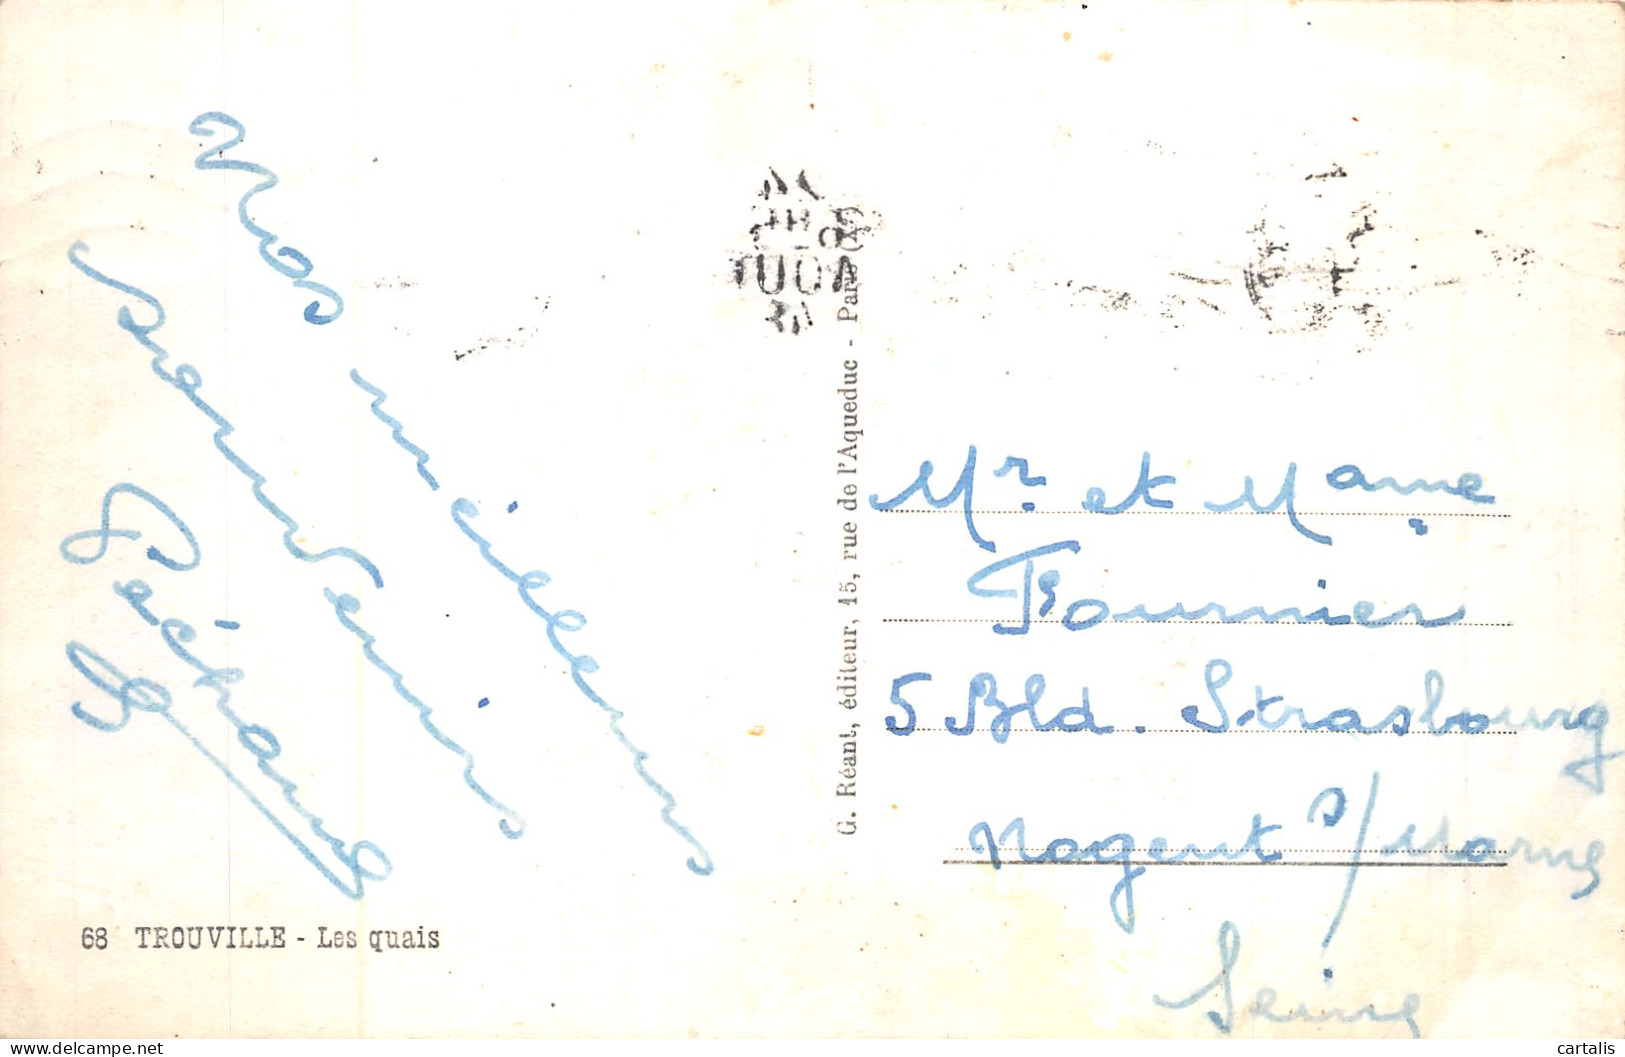 Nos meilleurs
souvenirs
68 TROUVILLE - Les quais
G. Réant, éditeur, 15, rue de l'Aqueduc - Paris
Mr. et Mame
Fournier
5 Bld. Strasbourg
Nogent s/ Marne
Seine
cartalis